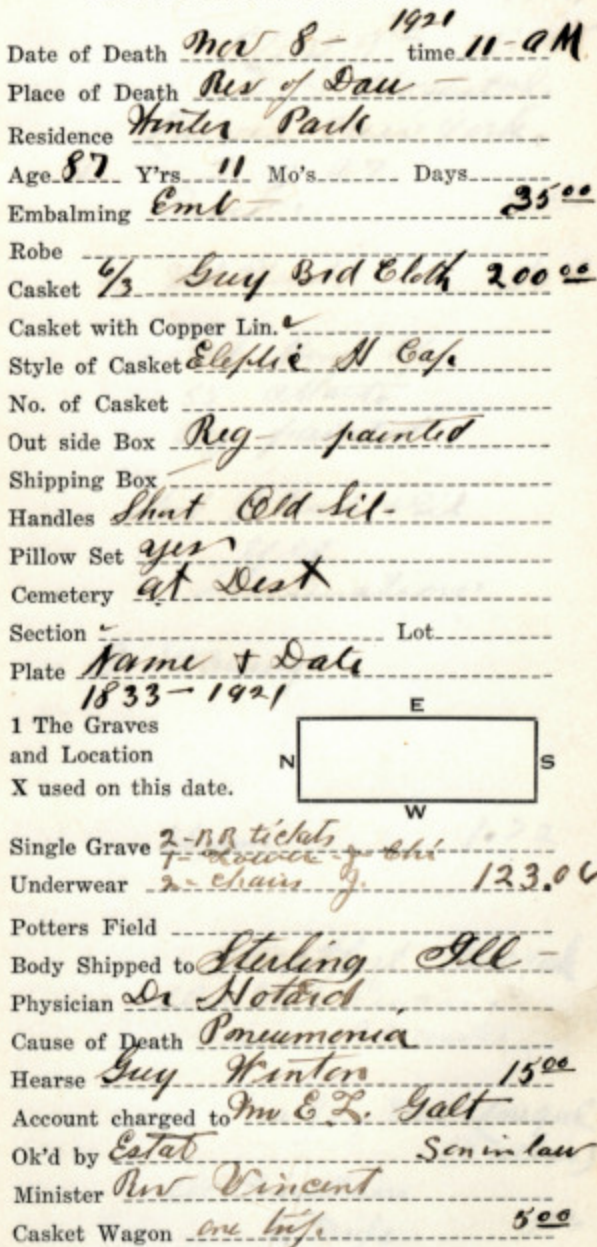 1921
Date of Death Nov 8 - time 11 - AM
Place of Death Res of Dau -
Residence Winter Park
Age 87 Y'rs 11 Mo's Days
Embalming Emb 35 00
Robe
Casket 6/3 Guy Brd Cloth 200 00
Casket with Copper Lin.
Style of Casket Eleptic H Cap.
No. of Casket
Out side Box Reg - painted
Shipping Box
Handles Short Old Sil -
Pillow Set yes
Cemetery at Dest
Section Lot
Plate Name + Date
1833 - 1921
E
1 The Graves
and Location N S
X used on this date.
W
Single Grave 2 - RR tickets
1 - Lower Chi
Underwear 2 - chairs 123.00
Potters Field
Body Shipped to Sterling Ill -
Physician Dr Hotard
Cause of Death Pneumonia
Hearse Guy Winton 15 00
Account charged to Mr E L. Galt
Ok'd by Estat Son in law
Minister Rev Vincent
Casket Wagon one trip. 5 00